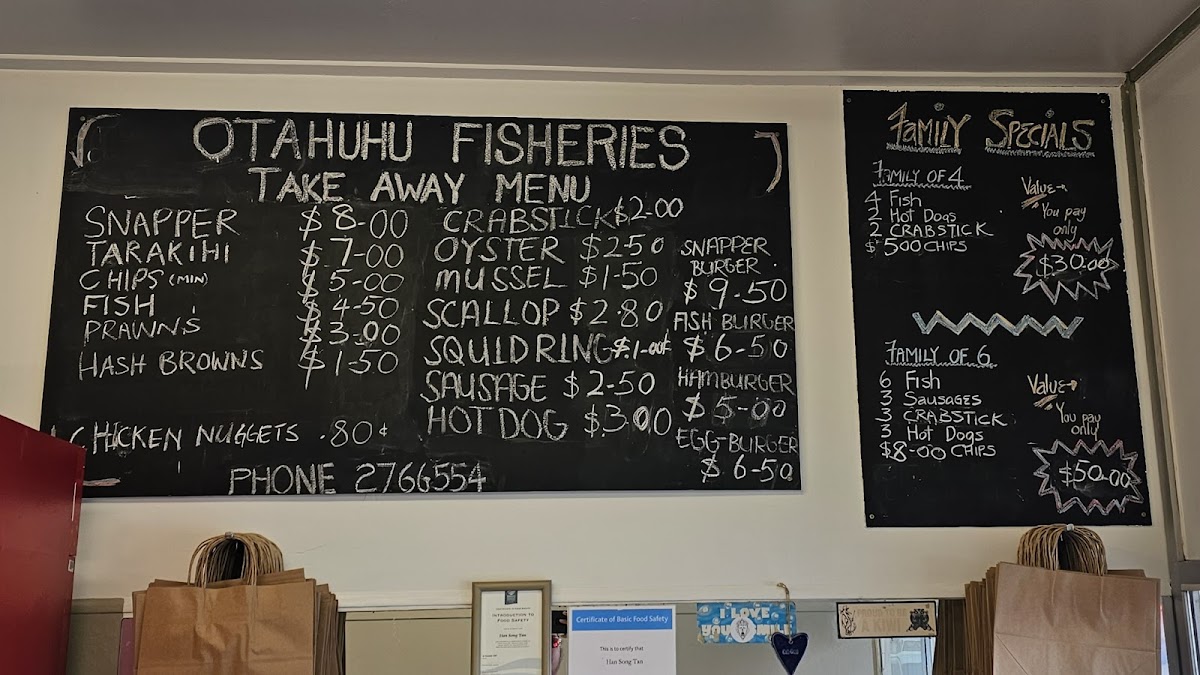 OTAHUHU FISHERIES
TAKE AWAY MENU
SNAPPER $8-00
TARAKIHI $7-00
CHIPS (MIN) $5-00
FISH $4-50
PRAWNS $3-00
HASH BROWNS $1-50
CHICKEN NUGGETS .80¢
PHONE 2766554
CRABSTICK $2-00
OYSTER $2-50
MUSSEL $1-50
SCALLOP $2-80
SQUID RING $1-00
SAUSAGE $2-50
HOT DOG $3-00
SNAPPER
BURGER
$9-50
FISH BURGER
$6-50
HAMBURGER
$5-00
EGG-BURGER
$6-50
FAMILY SPECIALS
FAMILY OF 4
4 Fish
2 Hot Dogs
2 CRABSTICK
$5.00 CHIPS
Value
You pay
only
$30.00
FAMILY OF 6
6 Fish
3 Sausages
3 CRABSTICK
3 Hot Dogs
$8-00 CHIPS
Value
You pay
only
$50.00
INTRODUCTION TO
FOOD SAFETY
Han Song Tan
Certificate of Basic Food Safety
This is to certify that
Han Song Tan
I LOVE
YOU
PROUD TO BE
A KIWI